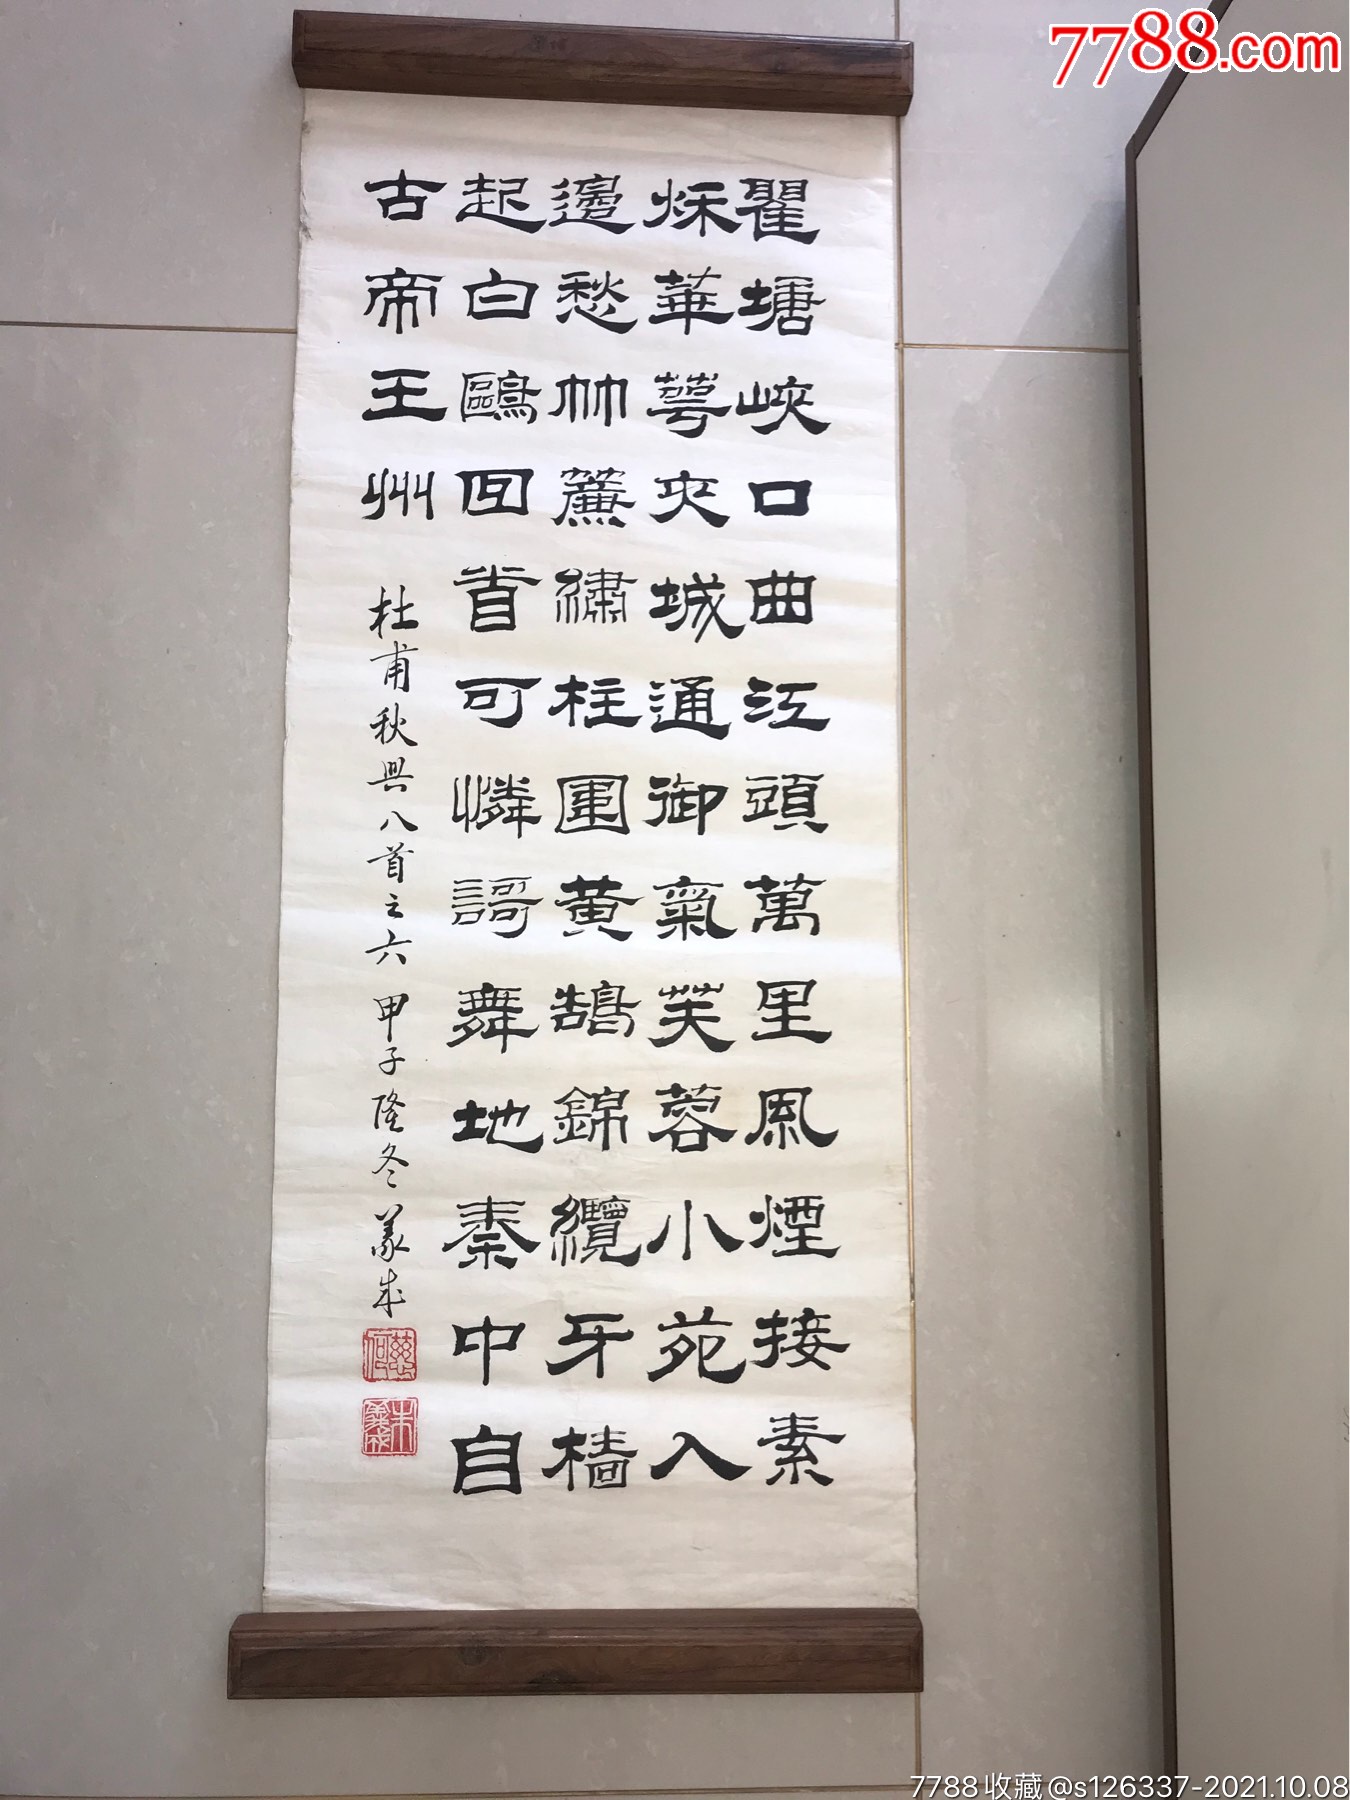 7788.com
瞿塘峽口曲江頭萬里風煙接素
秌華萼夾城通御氣芙蓉小苑入
邊愁竹簾繡柱圍黃鵠錦纜牙檣
起白鷗回首可憐謌舞地秦中自
古帝王州
杜甫秋興八首之六 甲子隆冬 義成
朱義成
7788收藏@s126337-2021.10.08